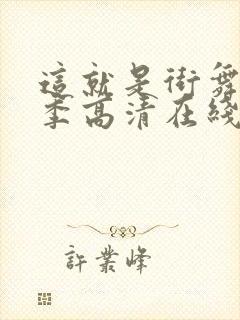 這就是街舞
季高清在綫
許業峰